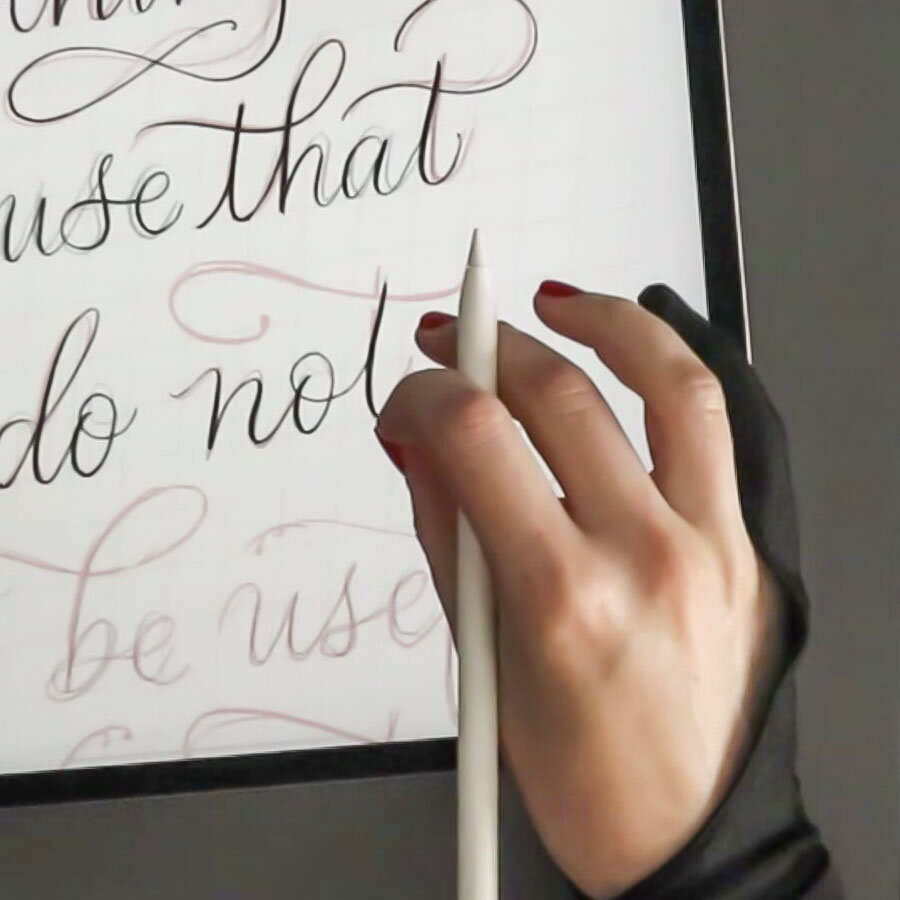 use that
do not
be use